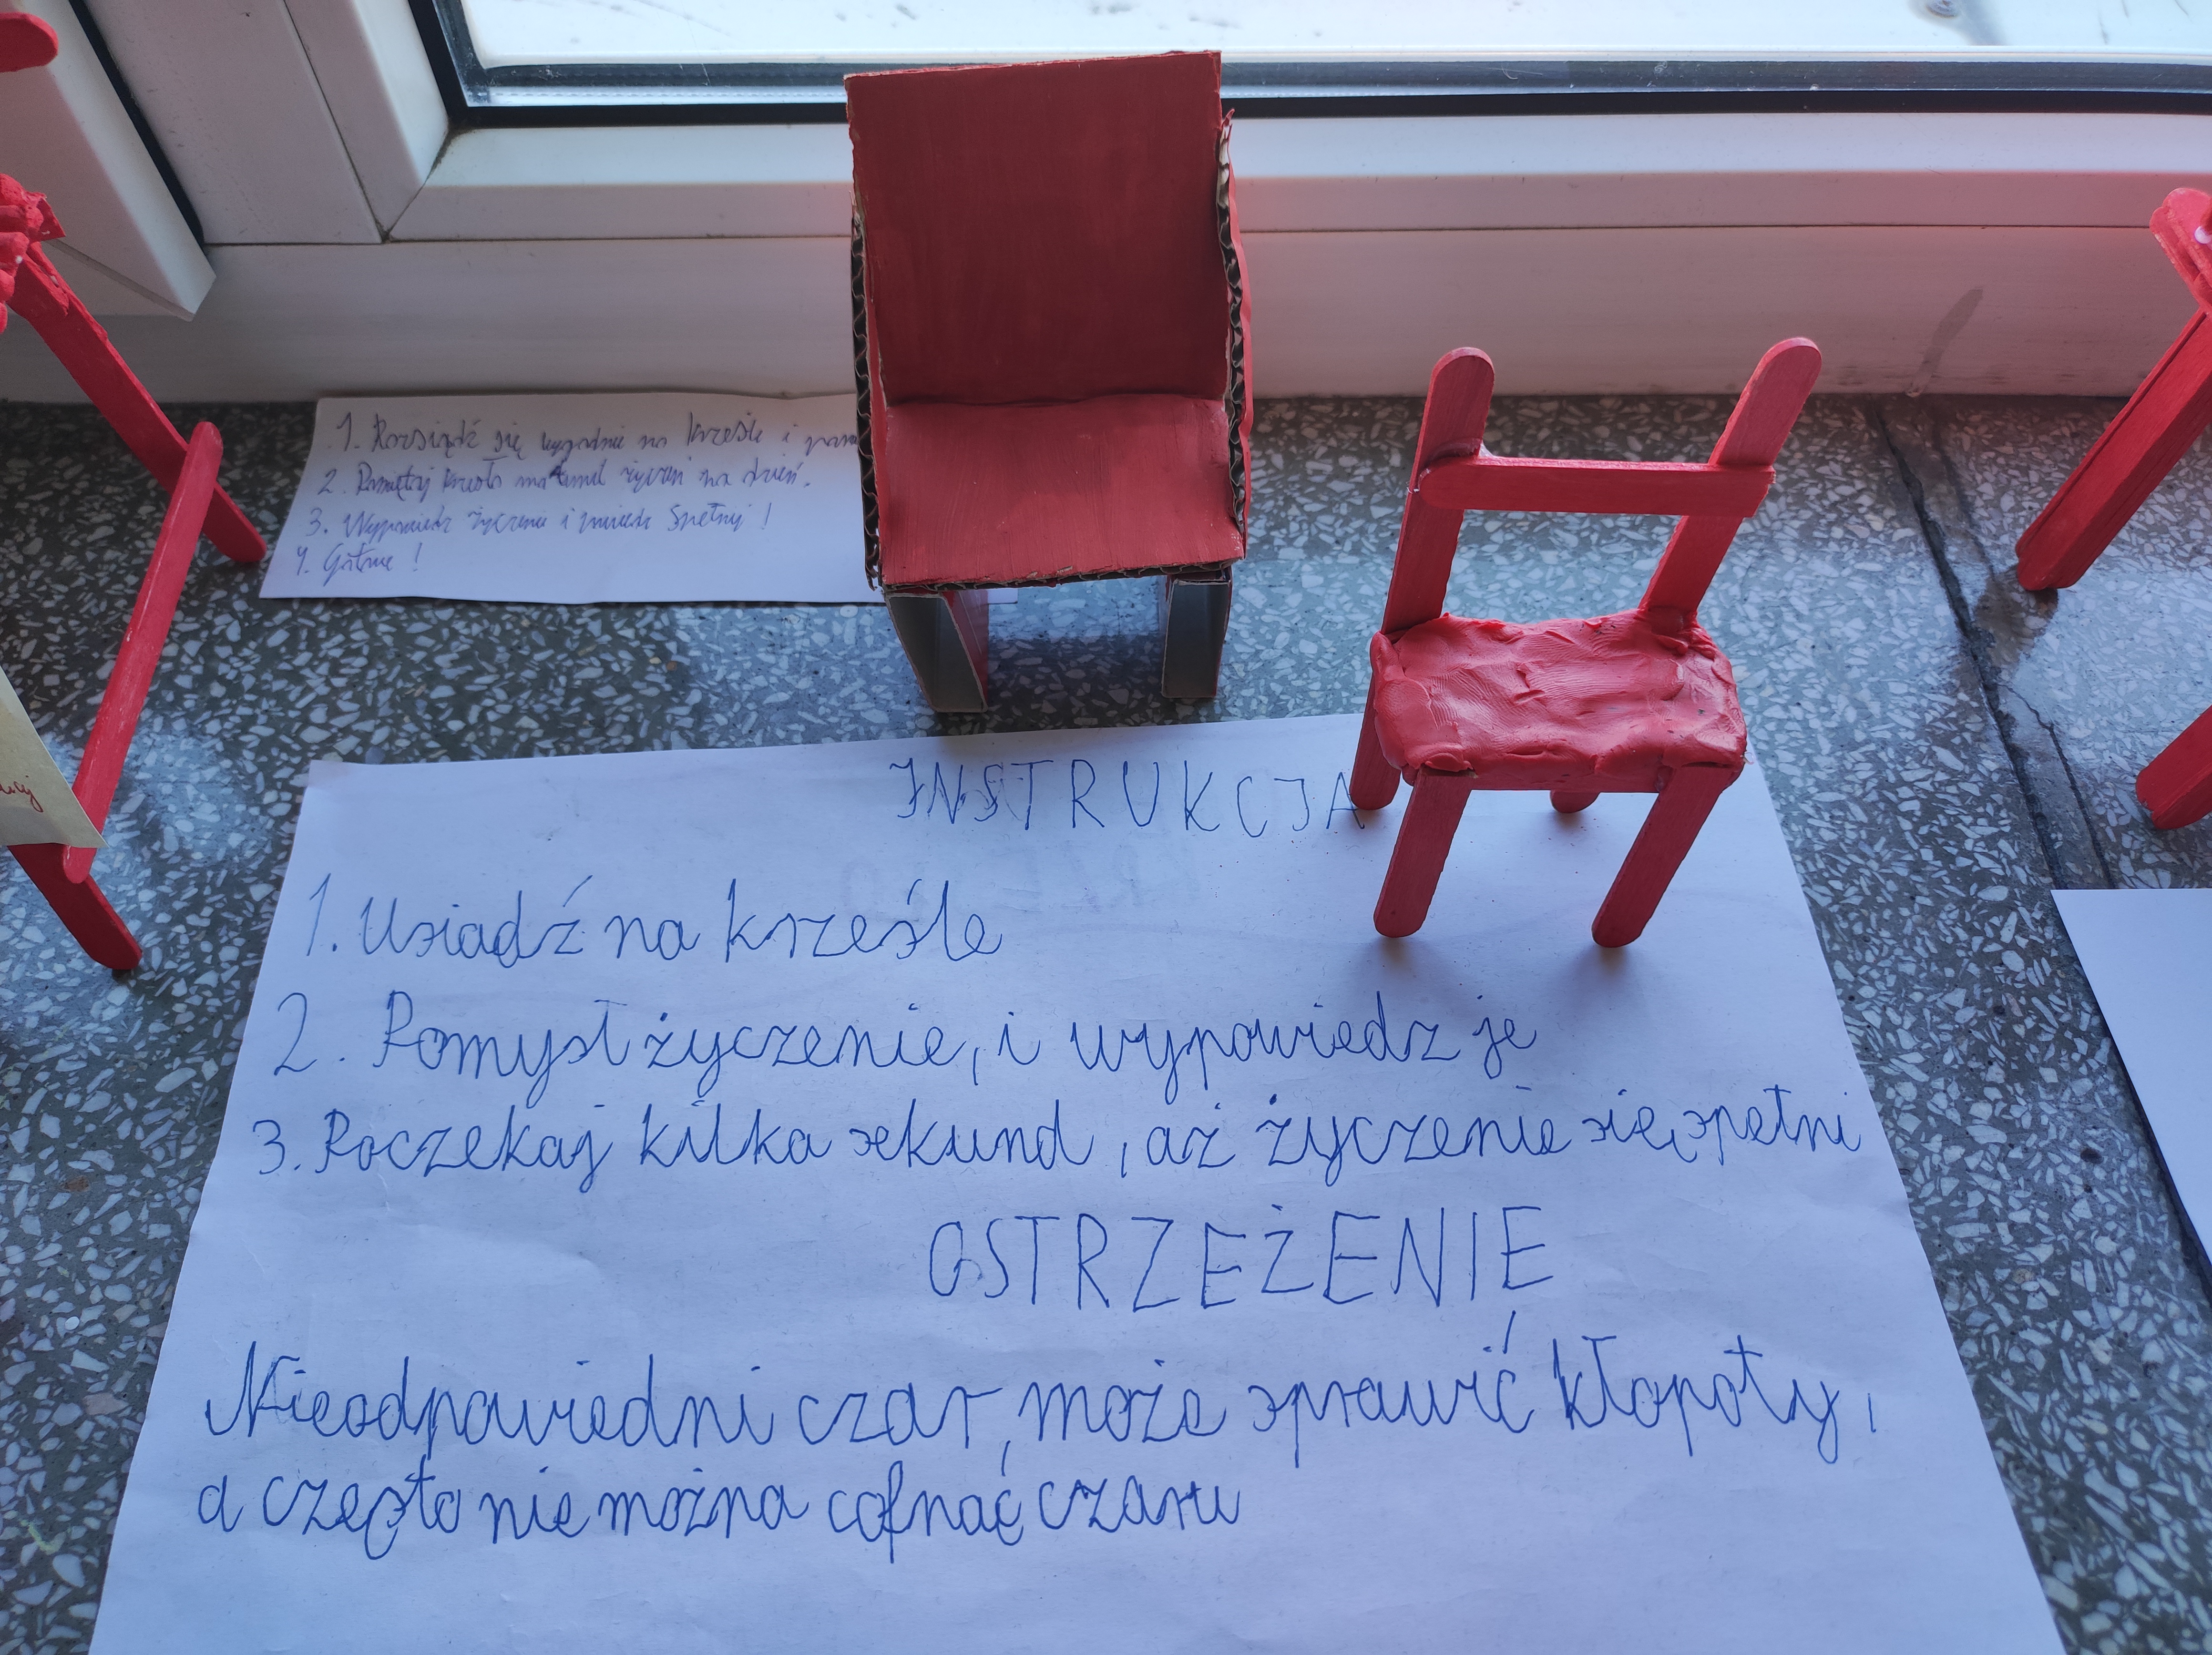 1. Rozsiądź się wygodnie na krześle i
2. Pamiętaj krzesło ma limit życzeń na dzień.
3. Wypowiedz życzenie i
4. Gotowe!
INSTRUKCJA
1. Usiądź na krześle
2. Pomyśl życzenie, i wypowiedz je
3. Poczekaj kilka sekund, aż życzenie się spełni
OSTRZEŻENIE
Nieodpowiedni czar, może sprawić kłopoty,
a często nie można cofnąć czaru